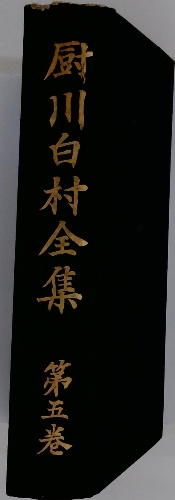 厨川白村全集
第五巻